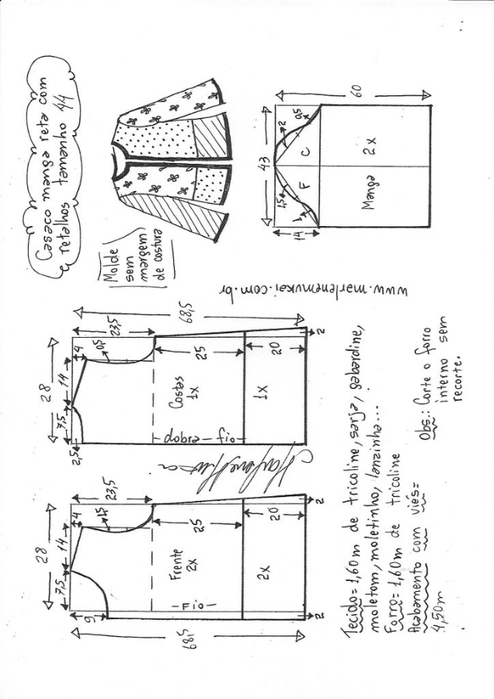 Casaco manga reta com
retalhos tamanho 44
Molde
sem
margem
de costura
60
43
14
1,5
2
0,5
F
C
Manga
2x
www.marlenemukai.com.br
28
7,5
14
4
2,5
0,5
23,5
68,5
25
20
2
Costas
1x
1x
fio
dobra
28
7,5
14
4
9
1,5
23,5
68,5
25
20
2
2
Frente
2x
2x
Fio
Tecido= 1,60m de tricoline, sarja, gabardine,
moletom, moletinho, lanzinha...
Forro= 1,60m de tricoline
Acabamento com viés=
4,50m
Obs.: Corte o forro
interno sem
recorte.